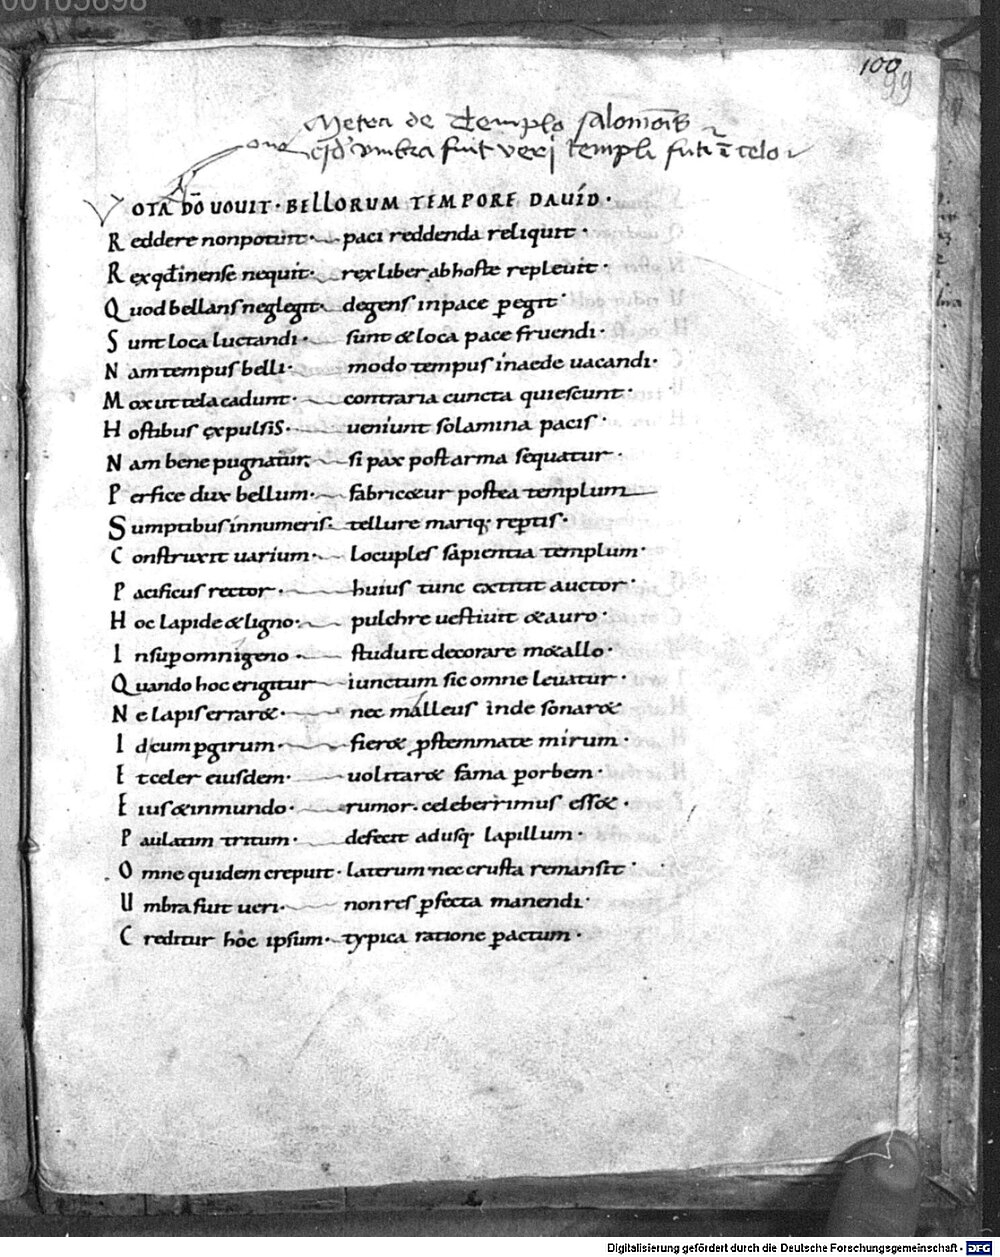 00105698
100
99
Metra de templo salomōis
qd' umbra fuit veri templi futī ī celo
VOTA DŌ VOUIT · BELLORUM TEMPORE DAUÍD ·
Reddere non potuit · paci reddenda reliquit ·
Rex qđ inense nequit · rex liber ab hoste repleuit ·
Quod bellans neglegit · degens in pace p̄egit ·
Sunt loca luctandi · sunt & loca pace fruendi ·
Nam tempus belli · modo tempus ínaede uacandi ·
Mox ut tela cadunt · contraria cuncta quiescunt ·
Hostibus ęxpulsis · ueniunt solamina pacis ·
Nam bene pugnatur · si pax post arma sequatur ·
Perfice dux bellum · fabric&ur postea templum
Sumptibus ínnumeris · tellure mariq; rep̄tis ·
Construxit uarium · locuples sapientia templum ·
Pacificus rector · huius tunc extitit auctor ·
Hoc lapide & ligno · pulchre uestiuit & auro ·
Insup̄ omnigeno · studuit decorare m&allo ·
Quando hoc erigitur iunctum sic omne leuatur ·
Ne lapis errar& · nec malleus inde sonar&
Id cum p̄girum · fier& p̄ stemmate mirum ·
Et celer eiusdem · uolitar& fama p̄ orbem ·
Eius & in mundo · rumor · celeberrimus ess& ·
Paulatim tritum · defecit adusq; lapillum ·
Omne quidem crepuit · laterum nec crusta remansit ·
Umbra fuit ueri · non res p̄fecta manendi ·
Creditur hoc ipsum · typica ratione p̄actum ·
Digitalisierung gefördert durch die Deutsche Forschungsgemeinschaft - DFG